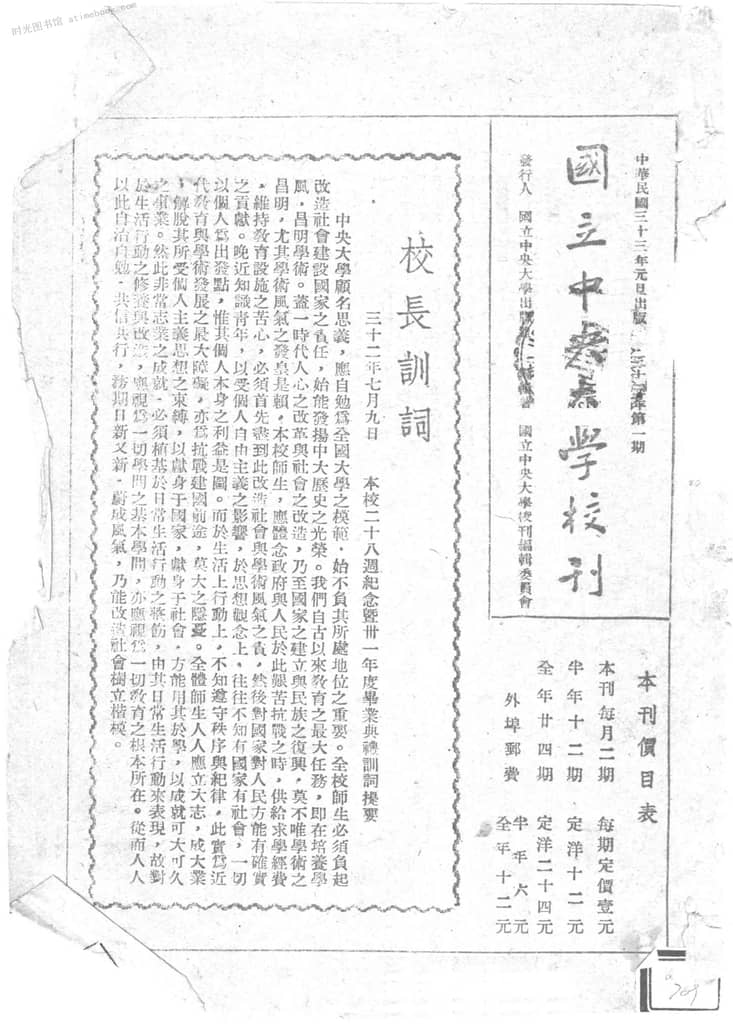 时光图书馆 atimebook.com
中華民國三十三年元旦出版
第一期
國立中央大學校刊
發行人 國立中央大學出版
國立中央大學校刊編輯委員會
本刊價目表
本刊每月二期 每期定價壹元
半年十二期 定洋十二元
全年廿四期 定洋二十四元
外埠郵費 半年六元
全年十二元
校長訓詞
三十二年七月九日 本校二十八週紀念暨卅一年度畢業典禮訓詞提要
中央大學顧名思義,應自勉爲全國大學之模範,始不負其所處地位之重要。全校師生必須負起
改造社會建設國家之責任,始能發揚中大歷史之光榮。我們自古以來敎育之最大任務,即在培養學
風,昌明學術。蓋一時代人心之改革與社會之改造,乃至國家之建立與民族之復興,莫不唯學術之
昌明,尤其學術風氣之發皇是賴,本校師生,應體念政府與人民於此艱苦抗戰之時,供給求學經費
,維持敎育設施之苦心,必須首先盡到此改造社會與學術風氣之責,然後對國家對人民方能有確實
之貢獻。晚近知識青年,以受個人自由主義之影響,於思想觀念上,往往不知有國家有社會,一切
以個人爲出發點,惟其個人本身之利益是圖。而於生活上行動上,不知遵守秩序與紀律,此實爲近
代敎育與學術發展之最大障礙,亦爲抗戰建國前途,莫大之隱憂。全體師生人人應立大志,成大業
,解脫其所受個人主義思想之束縛,以獻身于國家,獻身于社會,方能用其於學,以成就可大可久
之事業。然此非常志業之成就,必須植基於日常生活行動之整飭,由其日常生活行動來表現,故對
於生活行動之修養與改進,應視爲一切學問之基本學問,亦應視爲一切敎育之根本所在。從而人人
以此自治自勉,共信共行,務期日新又新,蔚成風氣,乃能改造社會樹立楷模。